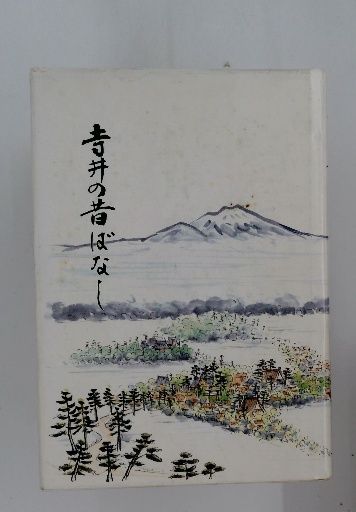 寺井の昔ばなし